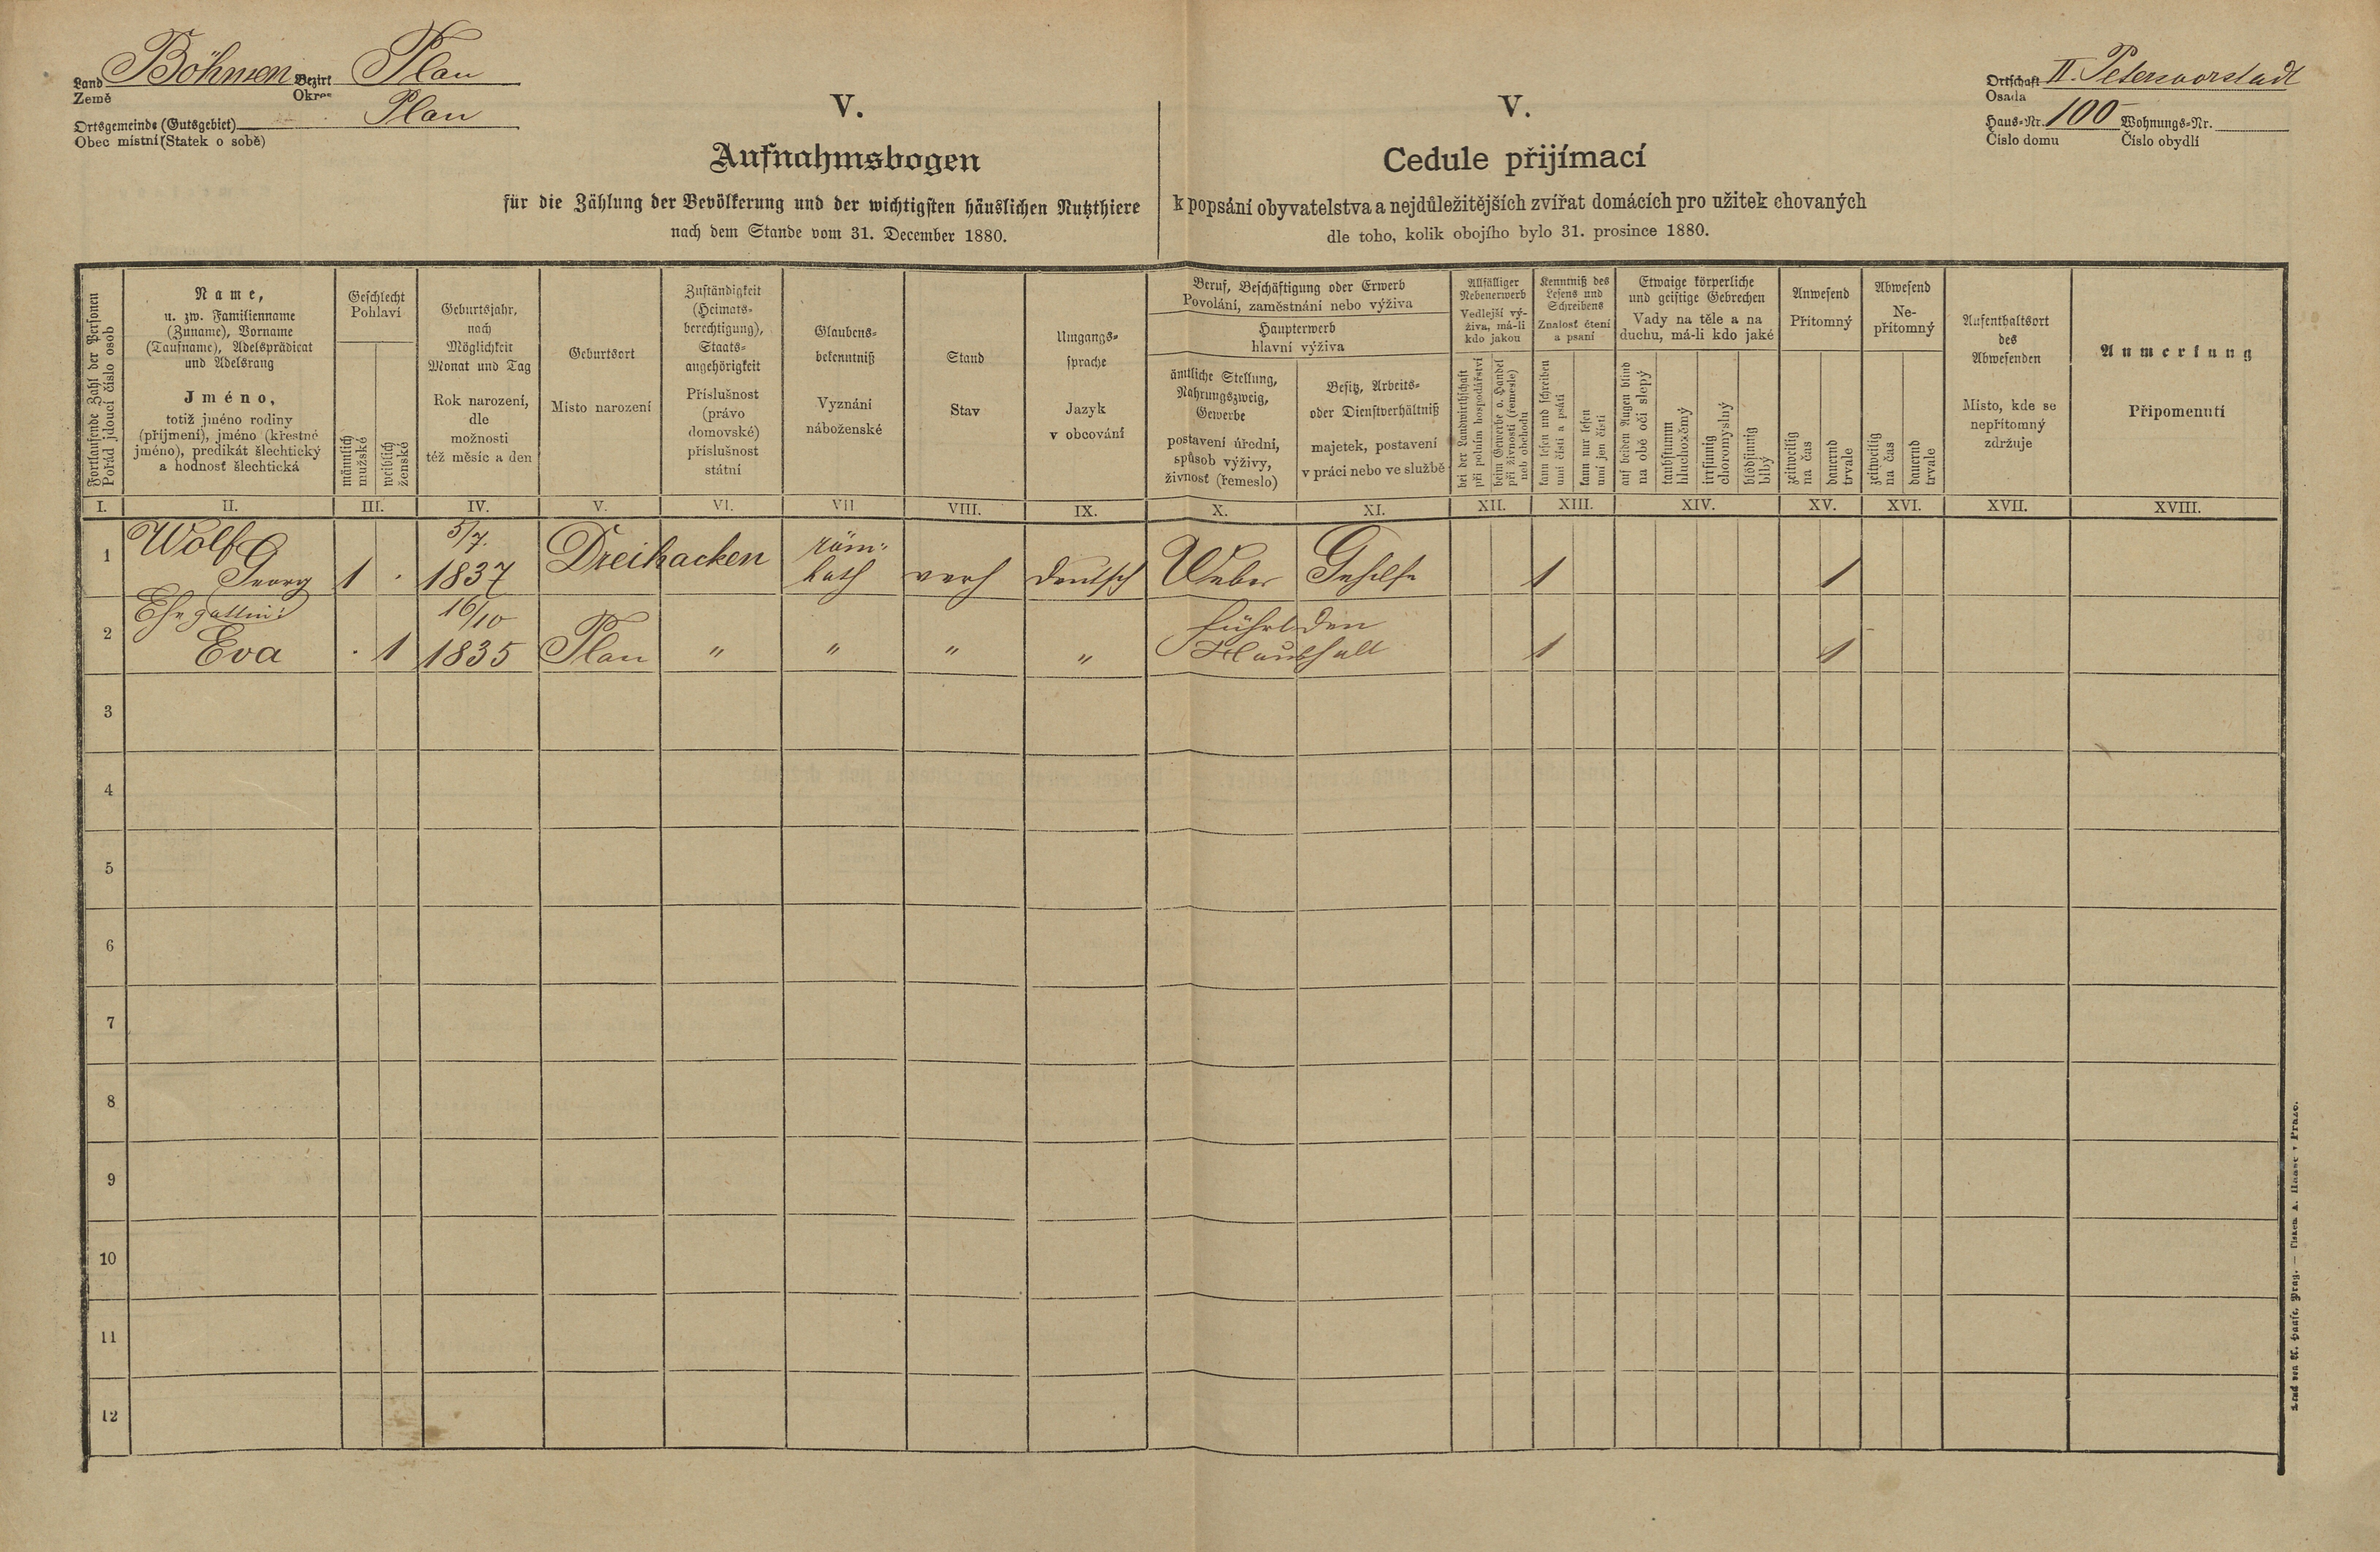 Land Böhmen Bezirk Plan
Země Okres
Ortsgemeinde (Gutsgebiet) Plan
Obec místní (Statek o sobě)
Ortschaft II. Petersvorstadt
Osada
Haus-Nr. 100 Wohnungs-Nr.
Číslo domu Číslo obydlí
V.
Aufnahmsbogen
für die Zählung der Bevölkerung und der wichtigsten häuslichen Nutzthiere
nach dem Stande vom 31. December 1880.
V.
Cedule přijímací
k popsání obyvatelstva a nejdůležitějších zvířat domácích pro užitek chovaných
dle toho, kolik obojího bylo 31. prosince 1880.
Fortlaufende Zahl der Personen
Pořád jdoucí číslo osob
Name,
u. zw. Familienname
(Zuname), Vorname
(Taufname), Adelsprädicat
und Adelsrang
Jméno,
totiž jméno rodiny
(příjmení), jméno (křestné
jméno), predikát šlechtický
a hodnosť šlechtická
Geschlecht
Pohlaví
männlich
mužské
weiblich
ženské
Geburtsjahr,
nach
Möglichkeit
Monat und Tag
Rok narození,
dle
možnosti
též měsíc a den
Geburtsort
Místo narození
Zuständigkeit
(Heimats-
berechtigung),
Staats-
angehörigkeit
Příslušnost
(právo
domovské)
příslušnost
státní
Glaubens-
bekenntniß
Vyznání
náboženské
Stand
Stav
Umgangs-
sprache
Jazyk
v obcování
Beruf, Beschäftigung oder Erwerb
Povolání, zaměstnání nebo výživa
Haupterwerb
hlavní výživa
ämtliche Stellung,
Nahrungszweig,
Gewerbe
postavení úřední,
spůsob výživy,
živnost (řemeslo)
Besitz, Arbeits-
oder Dienstverhältniß
majetek, postavení
v práci nebo ve službě
Allfälliger
Nebenerwerb
Vedlejší vý-
živa, má-li
kdo jakou
bei der Landwirthschaft
při polním hospodářství
beim Gewerbe o. Handel
při živnosti (řemesle)
neb obchodu
Kenntniß des
Lesens und
Schreibens
Znalost čtení
a psaní
kann lesen und schreiben
umí čísti a psáti
kann nur lesen
umí jen čísti
Etwaige körperliche
und geistige Gebrechen
Vady na těle a na
duchu, má-li kdo jaké
auf beiden Augen blind
na obě oči slepý
taubstumm
hluchoněmý
irrsinnig
choromyslný
blödsinnig
blbý
Anwesend
Přítomný
zeitweilig
na čas
dauernd
trvale
Abwesend
Ne-
přítomný
zeitweilig
na čas
dauernd
trvale
Aufenthaltsort
des
Abwesenden
Místo, kde se
nepřítomný
zdržuje
Anmerkung
Připomenutí
I. II. III. IV. V. VI. VII VIII. IX. X. XI. XII. XIII. XIV. XV. XVI. XVII. XVIII.
1 Wolf Georg 1 . 5/7. 1837 Dreihacken röm: kath verh deutsch Weber Gehilfe 1 1
2 Ehegattin: Eva . 1 16/10 1835 Plan " " " " führt den Haushalt 1 1
3
4
5
6
7
8
9
10
11
12
Druck von A. Haase, Prag. — Tiskem A. Haase v Praze.